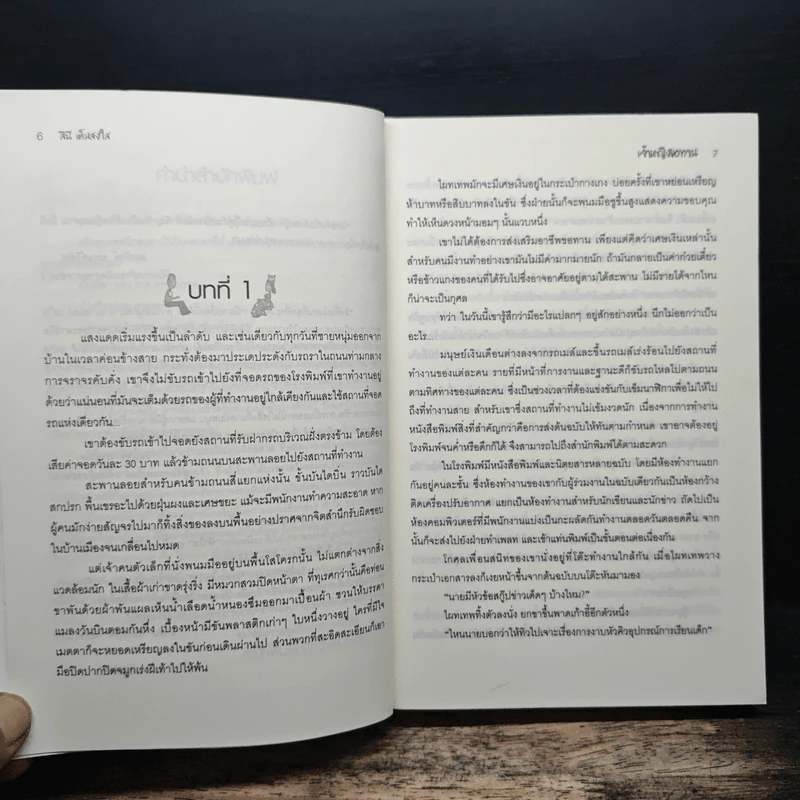 6 สินี เต็มสงไส
บทที่ 1
แสงแดดเริ่มแรงขึ้นเป็นลำดับ และเช่นเดียวกับทุกวันที่ชายหนุ่มออกจาก
บ้านในเวลาค่อนข้างสาย กระทั่งต้องมาประเดประดังกับรถราในถนนท่ามกลาง
การจราจรคับคั่ง เขาจึงไม่ขับรถเข้าไปยังที่จอดรถของโรงพิมพ์ที่เขาทำงานอยู่
ด้วยว่าแน่นอนที่มันจะเต็มด้วยรถของผู้ที่ทำงานอยู่ใกล้เคียงกันและใช้สถานที่จอด
รถแห่งเดียวกัน...
เขาต้องขับรถเข้าไปจอดยังสถานที่รับฝากรถบริเวณฝั่งตรงข้าม โดยต้อง
เสียค่าจอดวันละ 30 บาท แล้วข้ามถนนบนสะพานลอยไปยังสถานที่ทำงาน
สะพานลอยสำหรับคนข้ามถนนสี่แยกแห่งนั้น ขั้นบันไดบิ่น ราวบันได
สกปรก พื้นเขรอะไปด้วยฝุ่นผงและเศษขยะ แม้จะมีพนักงานทำความสะอาด หาก
ผู้คนมักง่ายสัญจรไปมาก็ทิ้งสิ่งของลงบนพื้นอย่างปราศจากจิตสำนึกรับผิดชอบ
ในบ้านเมืองจนเกลื่อนไปหมด
แต่เจ้าคนตัวเล็กที่นั่งพนมมืออยู่บนพื้นโสโครกนั้น ไม่แตกต่างจากสิ่ง
แวดล้อมนัก ในเสื้อผ้าเก่าขาดรุ่งริ่ง มีหมวกสวมปิดหน้าตา ที่ทุเรศกว่านั้นคือท่อน
ขาพันด้วยผ้าพันแผลเห็นน้ำเลือดน้ำหนองซึมออกมาเปื้อนผ้า ชวนให้บรรดา
แมลงวันบินตอมกันหึ่ง เบื้องหน้ามีขันพลาสติกเก่าๆ ใบหนึ่งวางอยู่ ใครที่มีใจ
เมตตาก็จะหยอดเหรียญลงในขันก่อนเดินผ่านไป ส่วนพวกที่สะอิดสะเอียนก็เอา
มือปิดปากปิดจมูกเร่งฝีเท้าไปให้พ้น
เจ้าหญิงขอทาน 7
ไผทเทพมักจะมีเศษเงินอยู่ในกระเป๋ากางเกง บ่อยครั้งที่เขาหย่อนเหรียญ
ห้าบาทหรือสิบบาทลงในขัน ซึ่งฝ่ายนั้นก็จะพนมมือชูขึ้นสูงแสดงความขอบคุณ
ทำให้เห็นดวงหน้ามอมๆ นั้นแวบหนึ่ง
เขาไม่ได้ต้องการส่งเสริมอาชีพขอทาน เพียงแต่คิดว่าเศษเงินเหล่านั้น
สำหรับคนมีงานทำอย่างเขามันไม่มีค่ามากมายนัก ถ้ามันกลายเป็นค่าก๋วยเตี๋ยว
หรือข้าวแกงของคนที่ได้รับไปซึ่งอาจอาศัยอยู่ตามใต้สะพาน ไม่มีรายได้จากไหน
ก็น่าจะเป็นกุศล
ทว่า ในวันนี้เขารู้สึกว่ามีอะไรแปลกๆ อยู่สักอย่างหนึ่ง นึกไม่ออกว่าเป็น
อะไร...
มนุษย์เงินเดือนต่างลงจากรถเมล์และขึ้นรถเมล์เร่งร้อนไปยังสถานที่
ทำงานของแต่ละคน รายที่มีหน้าที่การงานและฐานะดีก็ขับรถไหลไปตามถนน
ตามทิศทางของแต่ละคน ซึ่งเป็นช่วงเวลาที่ต้องแข่งขันกับเข็มนาฬิกาเพื่อไม่ให้ไป
ถึงที่ทำงานสาย สำหรับเขาซึ่งสถานที่ทำงานไม่เข้มงวดนัก เนื่องจากการทำงาน
หนังสือพิมพ์สิ่งที่สำคัญกว่าคือการส่งต้นฉบับให้ทันตามกำหนด เขาอาจต้องอยู่
โรงพิมพ์จนค่ำหรือดึกก็ได้ จึงสามารถไปถึงสำนักพิมพ์ได้ตามสะดวก
ในโรงพิมพ์มีหนังสือพิมพ์และนิตยสารหลายฉบับ โดยมีห้องทำงานแยก
กันอยู่คนละชั้น ซึ่งห้องทำงานของเขากับผู้ร่วมงานในฉบับเดียวกันเป็นห้องกว้าง
ติดเครื่องปรับอากาศ แยกเป็นห้องทำงานสำหรับนักเขียนและนักข่าว ถัดไปเป็น
ห้องคอมพิวเตอร์ที่มีพนักงานแบ่งเป็นกะผลัดกันทำงานตลอดวันตลอดคืน จาก
นั้นก็จะส่งไปยังฝ่ายทำเพลท และเข้าแท่นพิมพ์เป็นขั้นตอนต่อเนื่องกัน
โกศลเพื่อนสนิทของเขานั่งอยู่ที่โต๊ะทำงานใกล้กัน เมื่อไผทเทพวาง
กระเป๋าเอกสารลงก็เงยหน้าขึ้นจากต้นฉบับบนโต๊ะหันมามอง
“นายมีหัวข้อสกู๊ปข่าวเด็ดๆ บ้างไหม?”
ไผทเทพทิ้งตัวลงนั่ง ยกขาขึ้นพาดเก้าอี้อีกตัวหนึ่ง
“ไหนนายบอกว่าให้ทิวไปเจาะเรื่องการงาบหัวคิวอุปกรณ์การเรียนเด็ก”